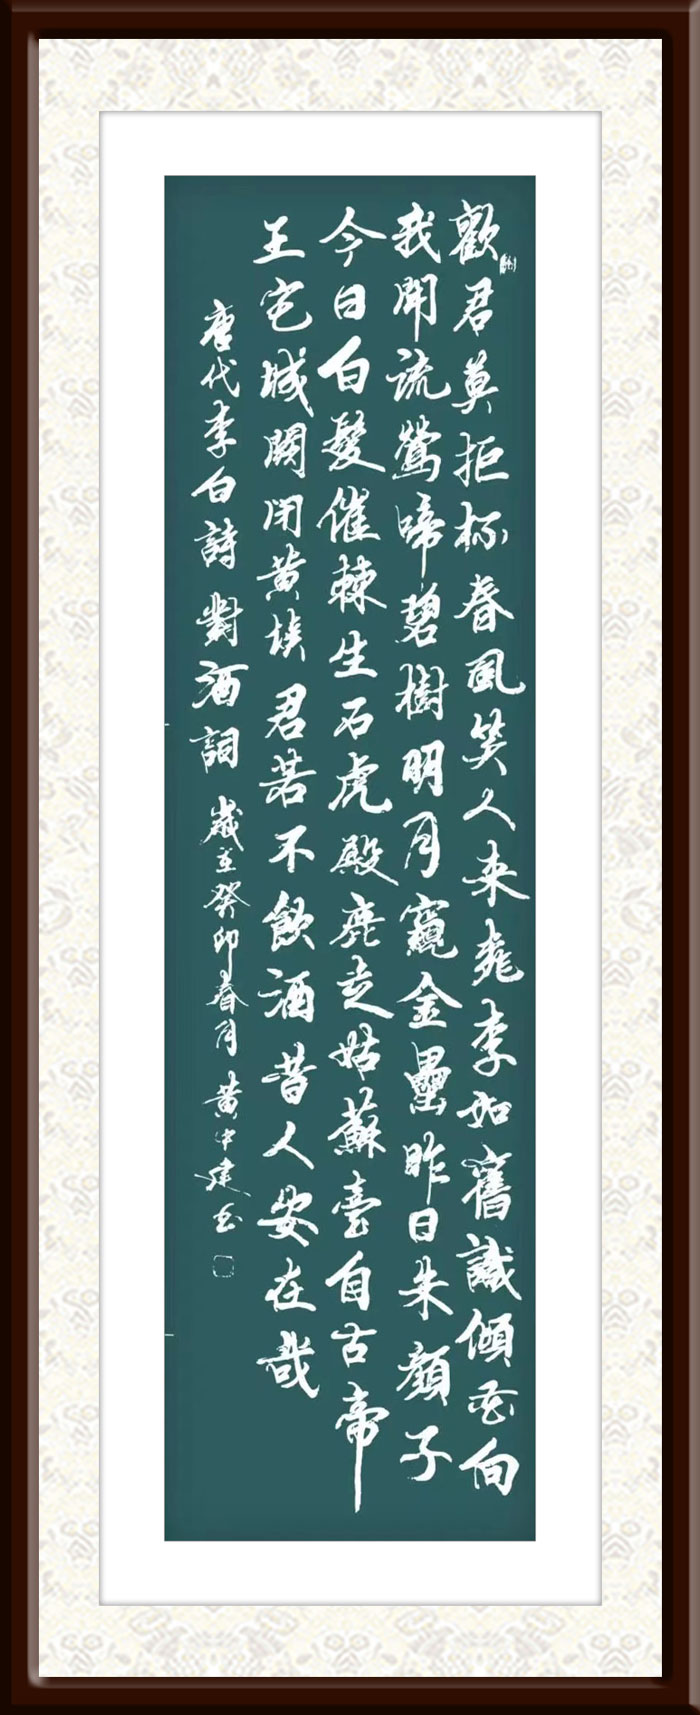 歡君莫拒杯春風笑人来桃李如舊識傾花向
我開流鶯啼碧樹明月窺金罍昨日朱顏子
今日白髮催棘生石虎殿鹿走姑蘇臺自古帝
王宅城闕閉黄埃君若不飲酒昔人安在哉
唐代李白詩 對酒詞 歲在癸卯春月 黄中建書